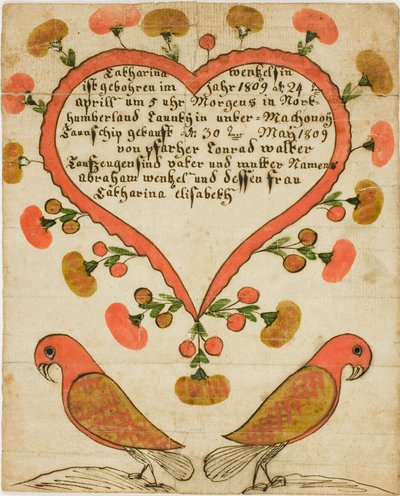 Catharina wentzlsin
ist gebohren im Jahr 1809 den 24 t
aprill um 5 uhr Morgens in Nort
humberland Caunty in unker=Machonoy
Taunschip getauft den 30 ten May 1809
von pfarher Conrad walter
Taufzeugen sind vater und mutter Namens
abraham wentzel und dessen frau
Catharina elisabeth